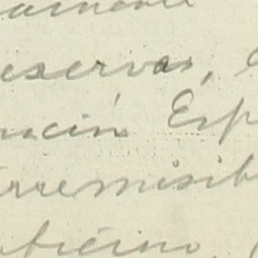 amente
eservas,
nación Esp
rremisib
oticino,